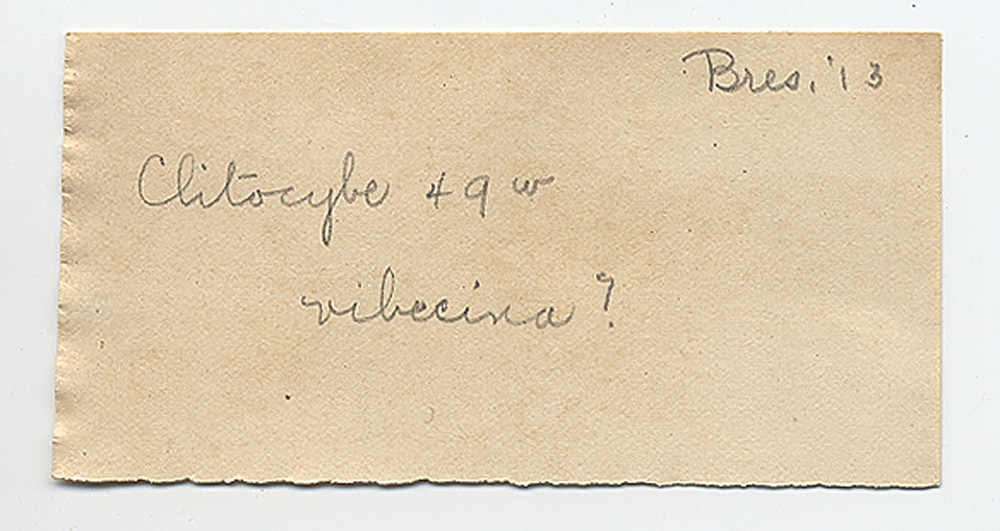 Bres. '13
Clitocybe 49 w
vibecina?